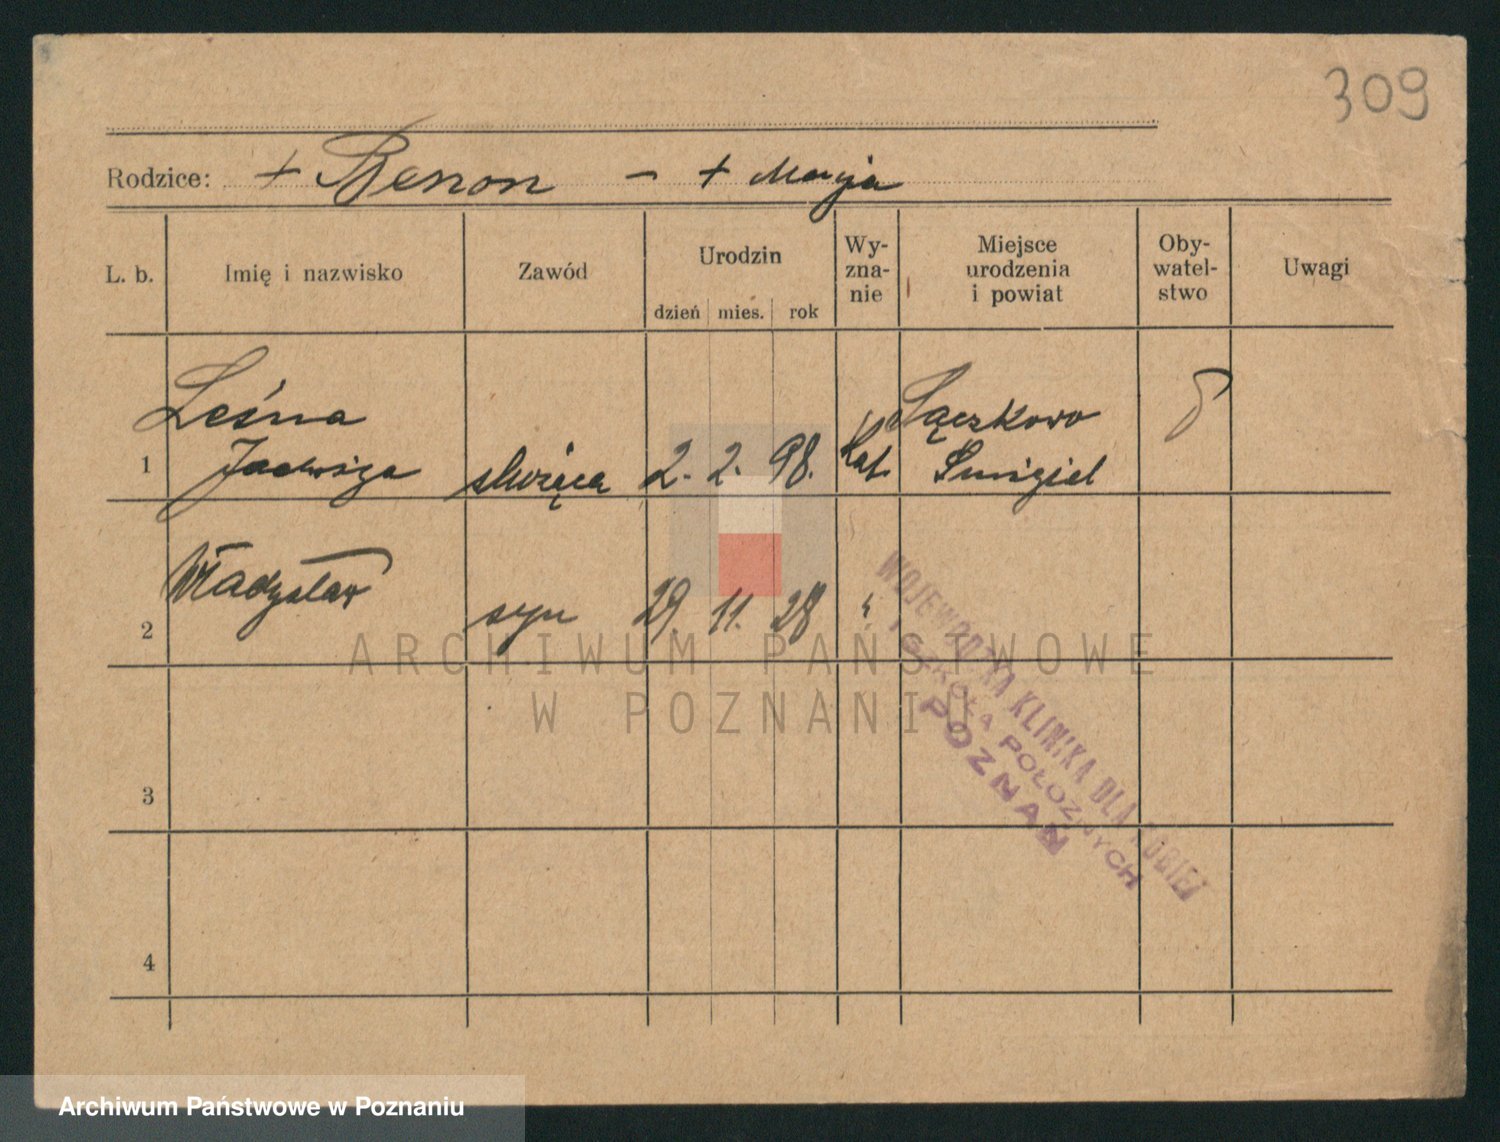 309
Rodzice: + Benon - + Marja
L. b. Imię i nazwisko Zawód Urodzin dzień mies. rok Wy-
zna-
nie Miejsce
urodzenia
i powiat Oby-
watel-
stwo Uwagi
1 Leśna
Jadwiga służąca 2. 2. 98. kat. Sączkowo
Śmigiel
2 Władysław syn 29. 11. 28 "
3
4
WOJEWÓDZKA KLINIKA DLA KOBIET
I SZKOŁA POŁOŻNYCH
POZNAŃ
ARCHIWUM PAŃSTWOWE
W POZNANIU
Archiwum Państwowe w Poznaniu